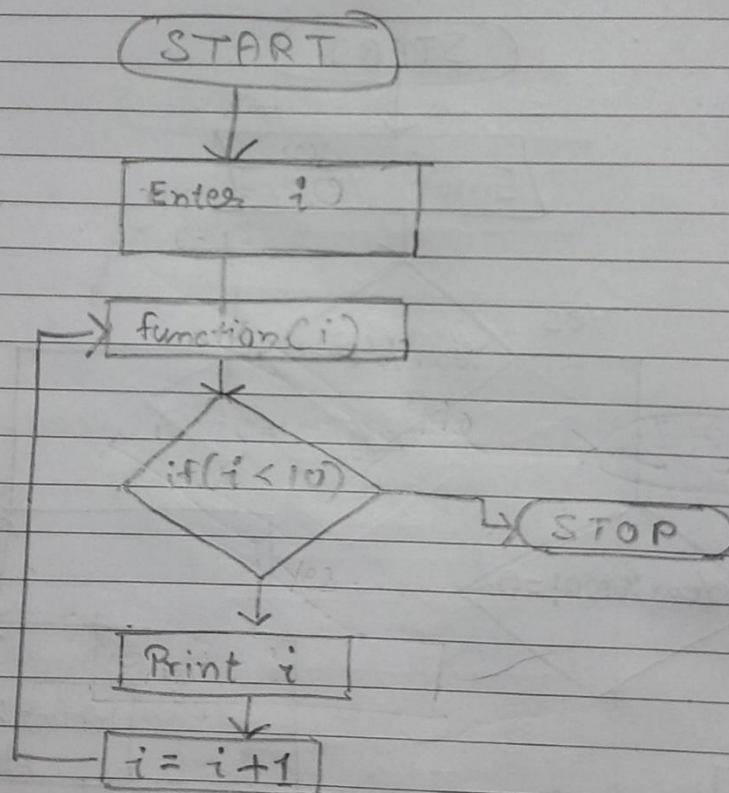 START
Enter i
function(i)
if(i < 10)
STOP
Print i
i = i + 1